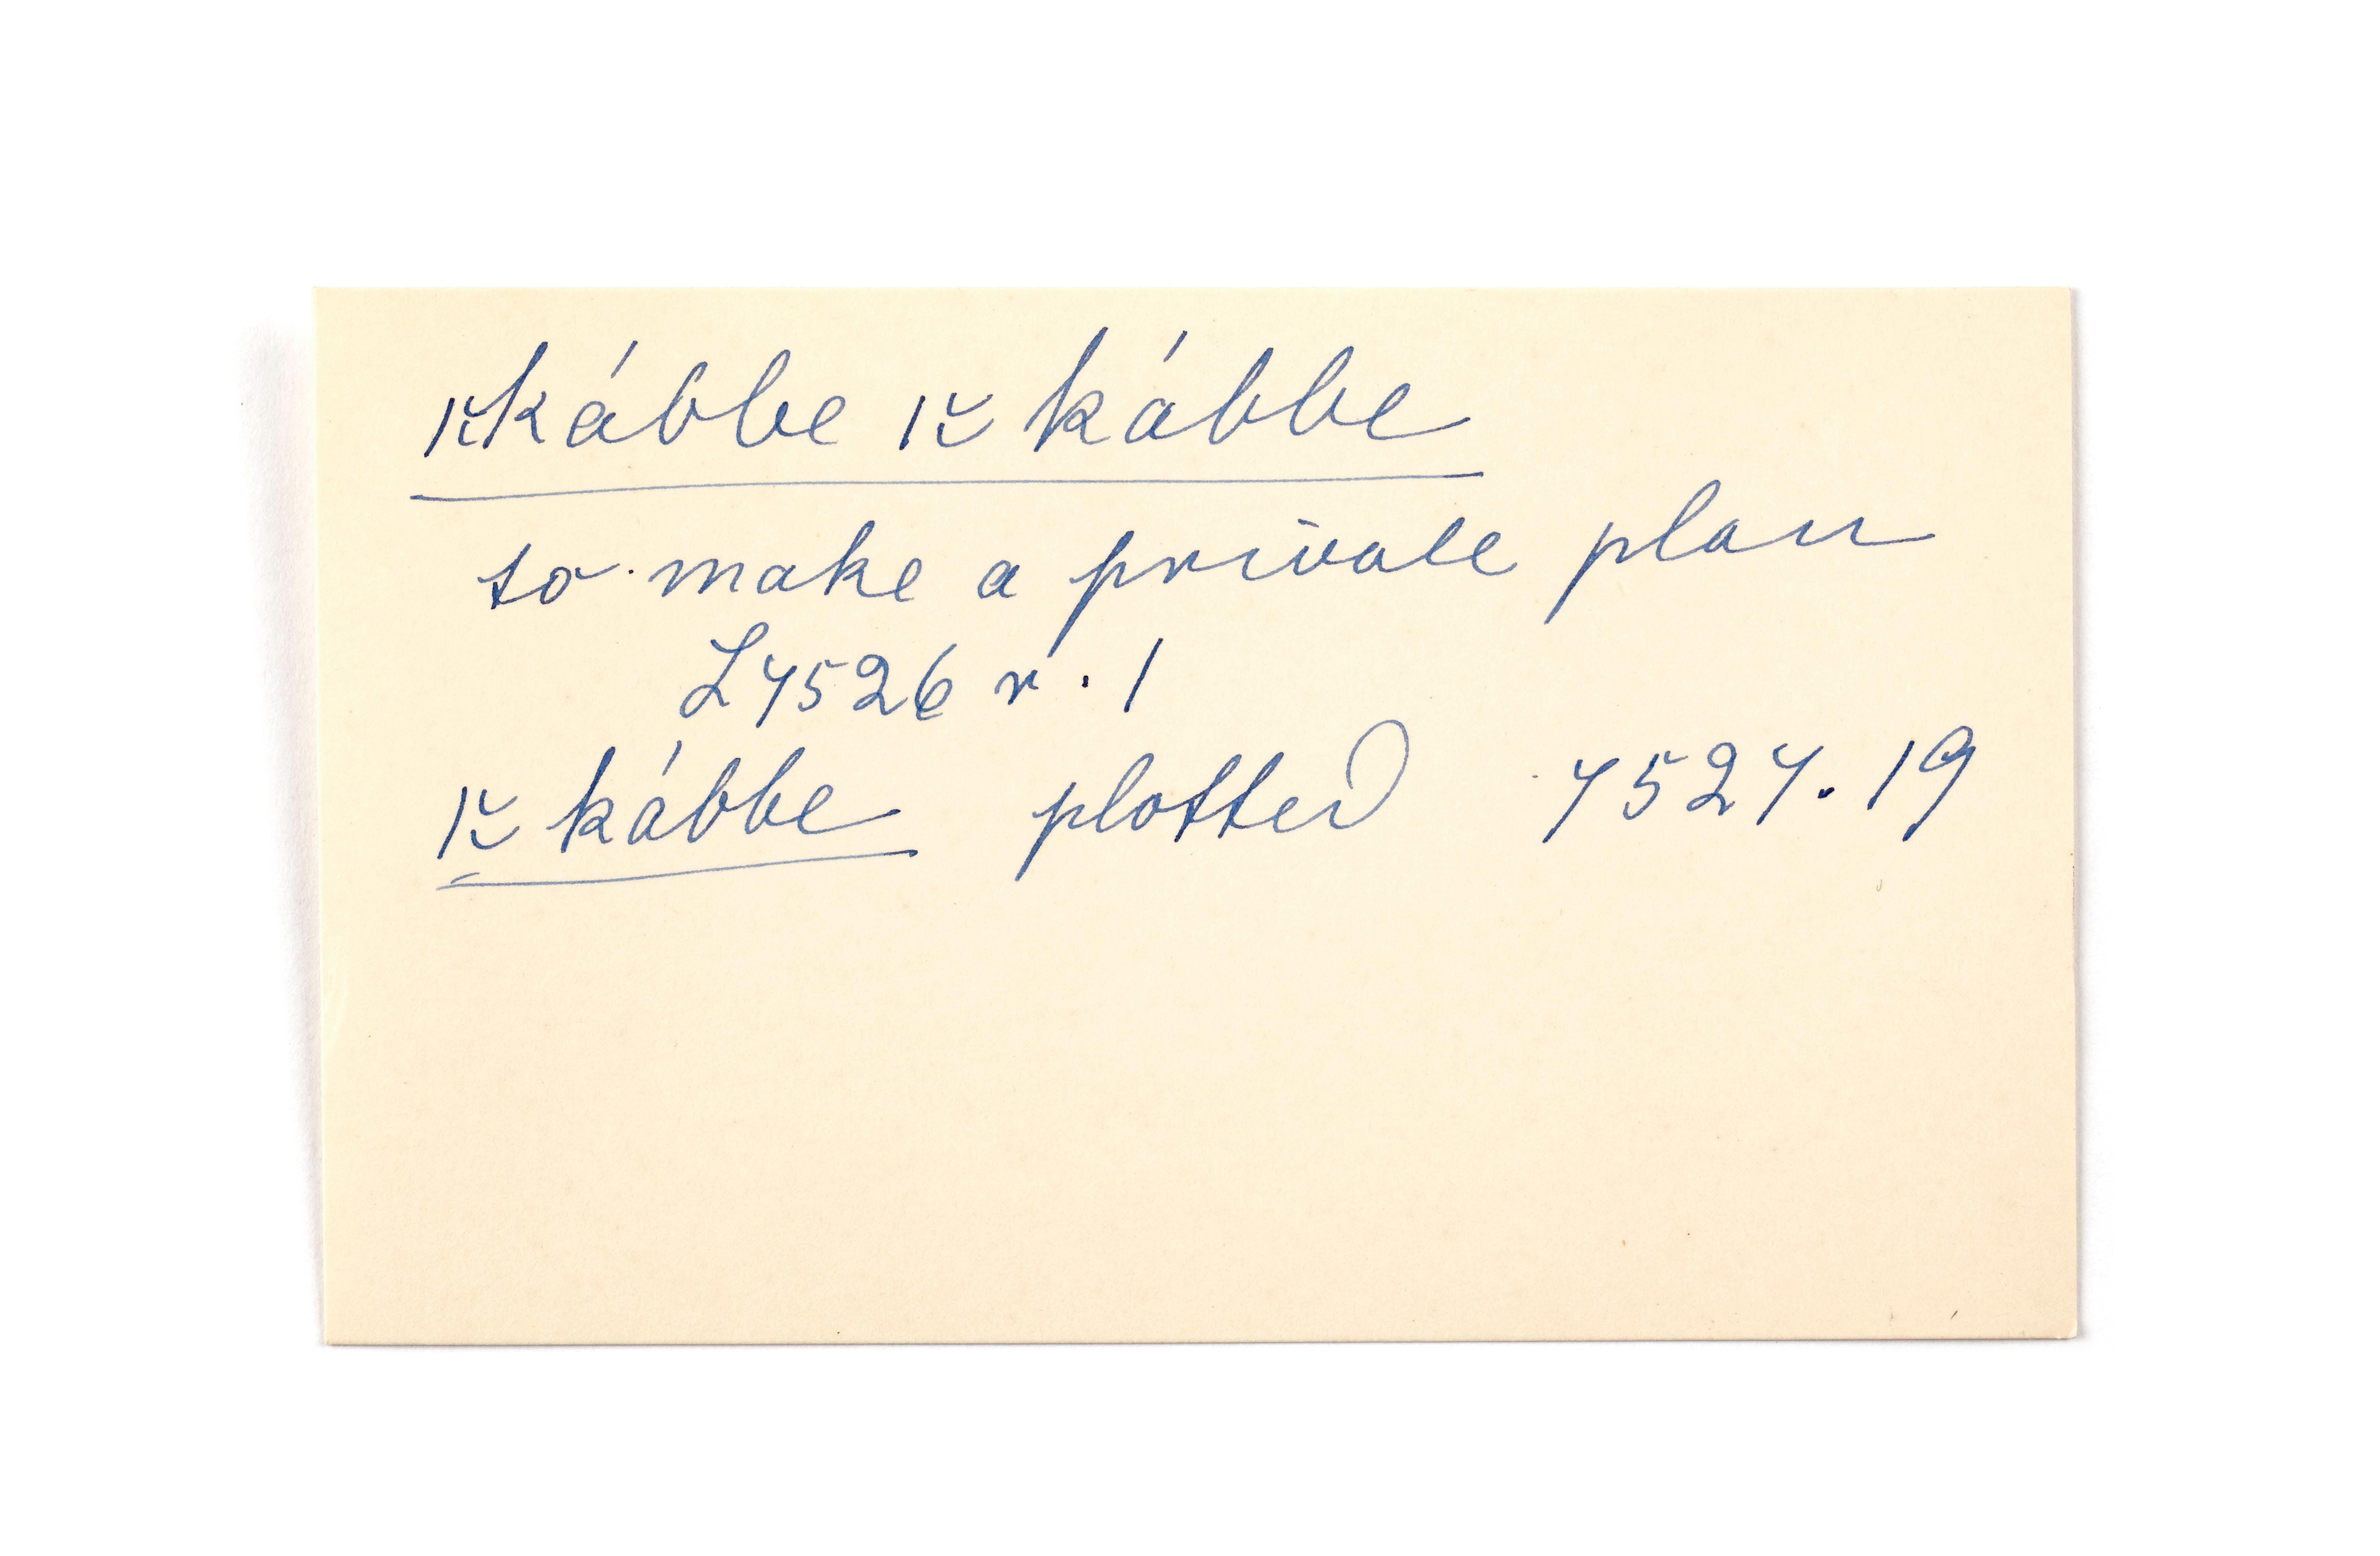 kábbe kábbe
to make a private plan
L7526 r. 1
kábbe plotted 7527.19